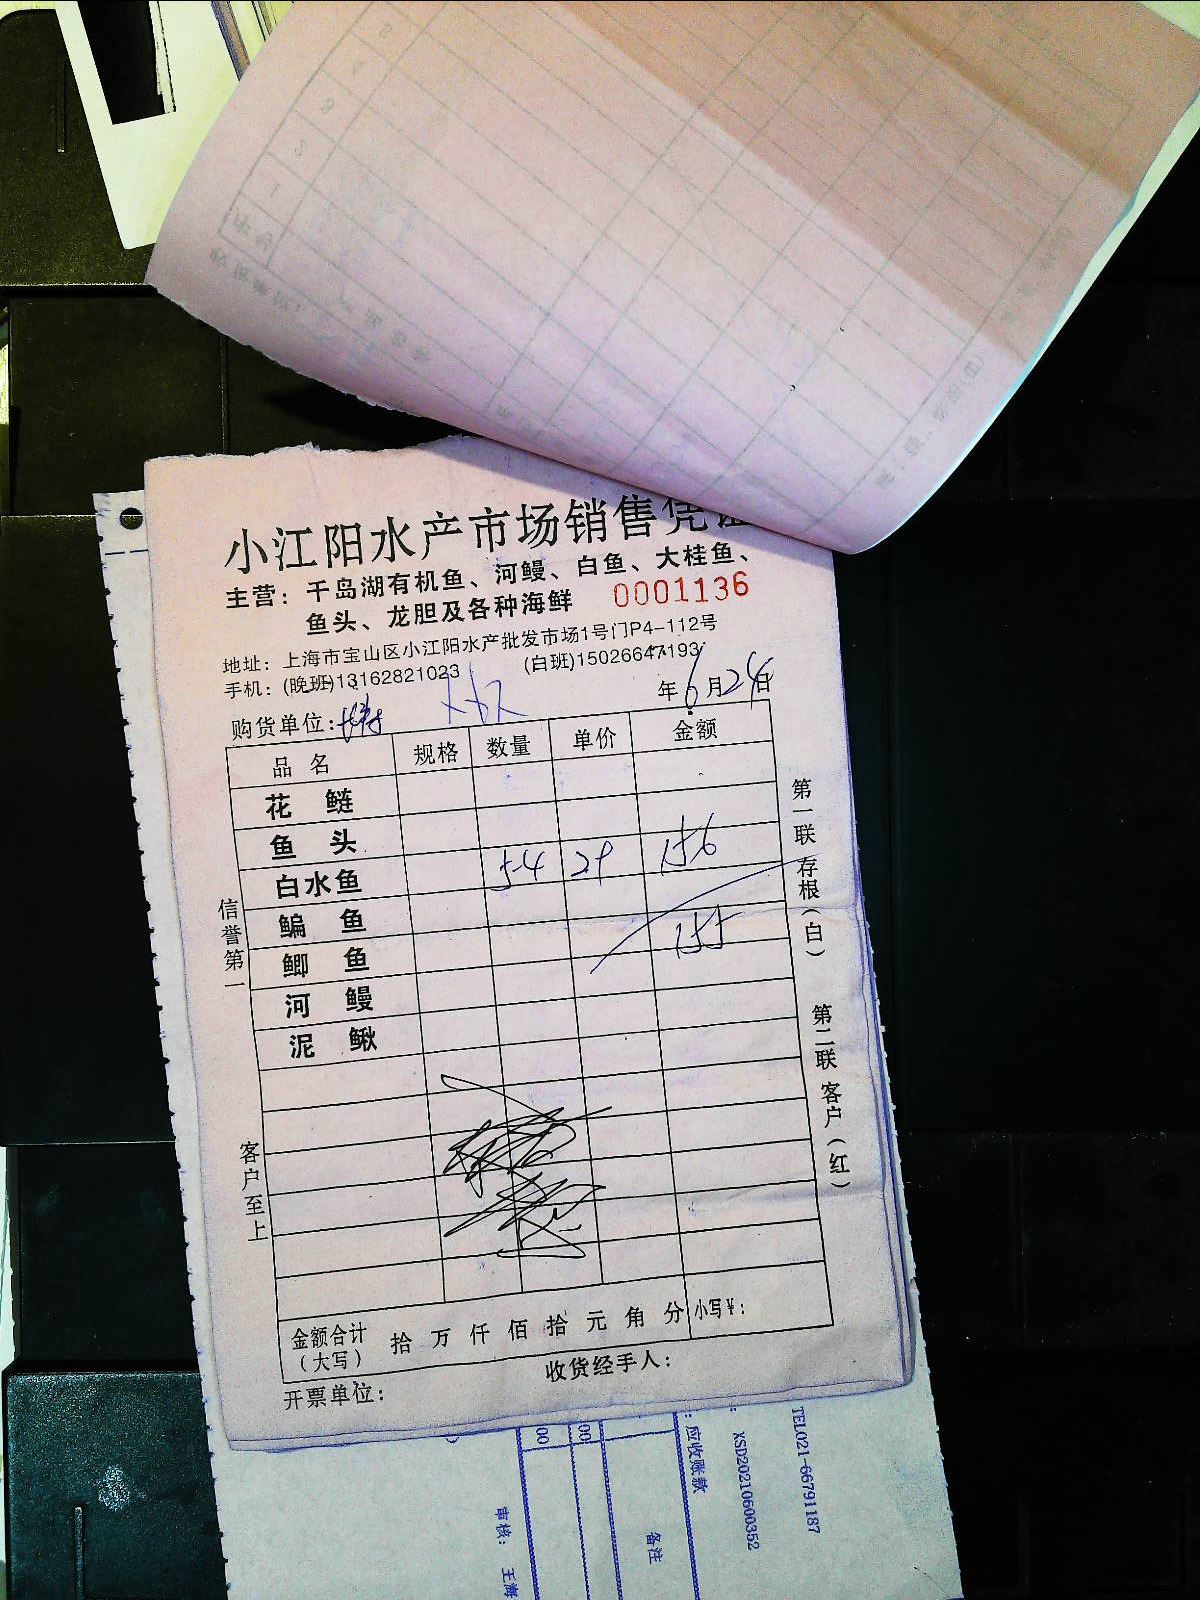 小江阳水产市场销售凭证
主营：千岛湖有机鱼、河鳗、白鱼、大桂鱼、
鱼头、龙胆及各种海鲜 0001136
地址：上海市宝山区小江阳水产批发市场1号门P4-112号
手机：(晚班)13162821023 (白班)15026647193
年6月24日
购货单位:
品名 规格 数量 单价 金额
花鲢
鱼头
白水鱼 5.4 29 156
鳊鱼 155
鲫鱼
河鳗
泥鳅
信誉第一
客户至上
第一联 存根(白)
第二联 客户(红)
金额合计(大写) 拾 万 仟 佰 拾 元 角 分 小写¥:
开票单位:
收货经手人:
00
00
:应收账款
XSD20210600352
TEL021-66791187
备注
审核: 王海